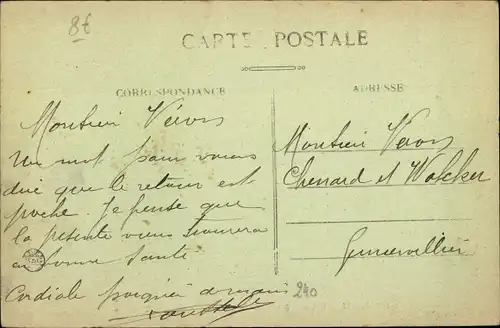 8€
CARTE POSTALE
CORRESPONDANCE
ADRESSE
Monsieur Veron
Un mot pour vous
dire que le retour est
proche. Je pense que
la présente vous trouvera
en bonne santé
Cordiale poignée de main
Monsieur Veron
Chenard et Walcker
Gennevilliers
240